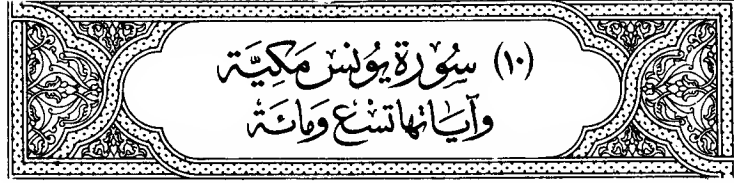 (١٠) سُورَة يُونس مَكِيَّة
وَآيَاتها تسْع وَمائة